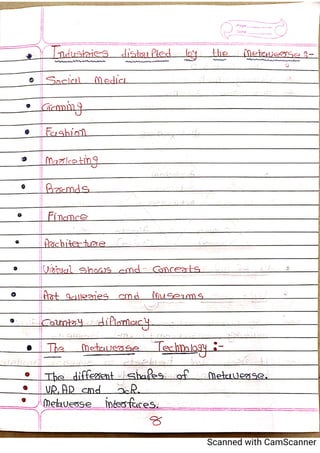 Industries disrupted by the Metaverse :-
Social Media
Gaming
Fashion
Marketing
Brands
Finance
Architecture
Virtual shows and Concerts
Art galleries and Museums
Country diplomacy
The metaverse Technology :-
The different shapes of metaverse.
VR, AR and XR.
Metaverse interfaces.
8
Scanned with CamScanner